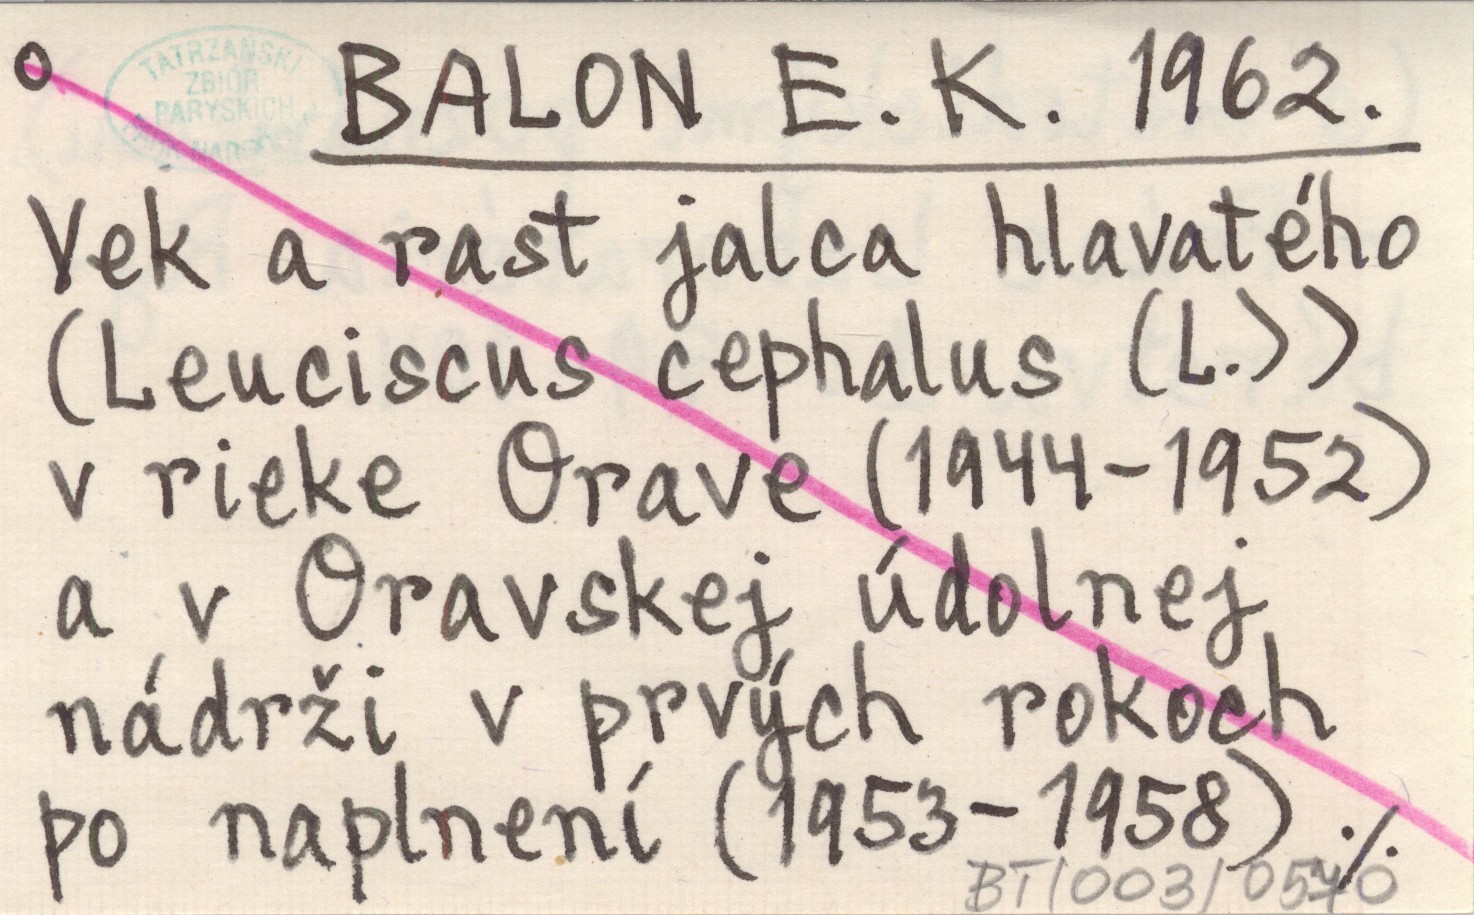 o BALON E. K. 1962.
TATRZAŃSKI
ZBIÓR
PARYSKICH
Vek a rast jalca hlavatého
(Leuciscus cephalus (L.))
v rieke Orave (1944-1952)
a v Oravskej údolnej
nádrži v prvých rokoch
po naplnení (1953-1958) ./.
BT/003/0570